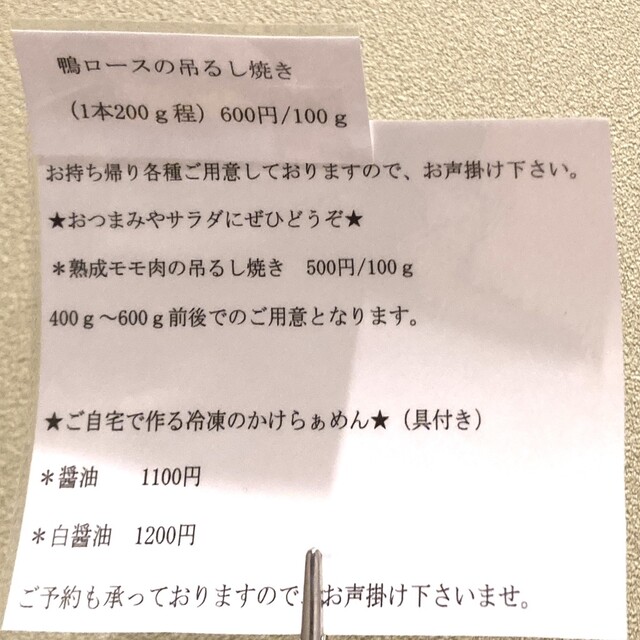 鴨ロースの吊るし焼き
（1本200ｇ程）600円/100ｇ
お持ち帰り各種ご用意しておりますので、お声掛け下さい。
★おつまみやサラダにぜひどうぞ★
＊熟成モモ肉の吊るし焼き　500円/100ｇ
400ｇ～600ｇ前後でのご用意となります。
★ご自宅で作る冷凍のかけらぁめん★（具付き）
＊醤油　　1100円
＊白醤油　1200円
ご予約も承っておりますので、お声掛け下さいませ。